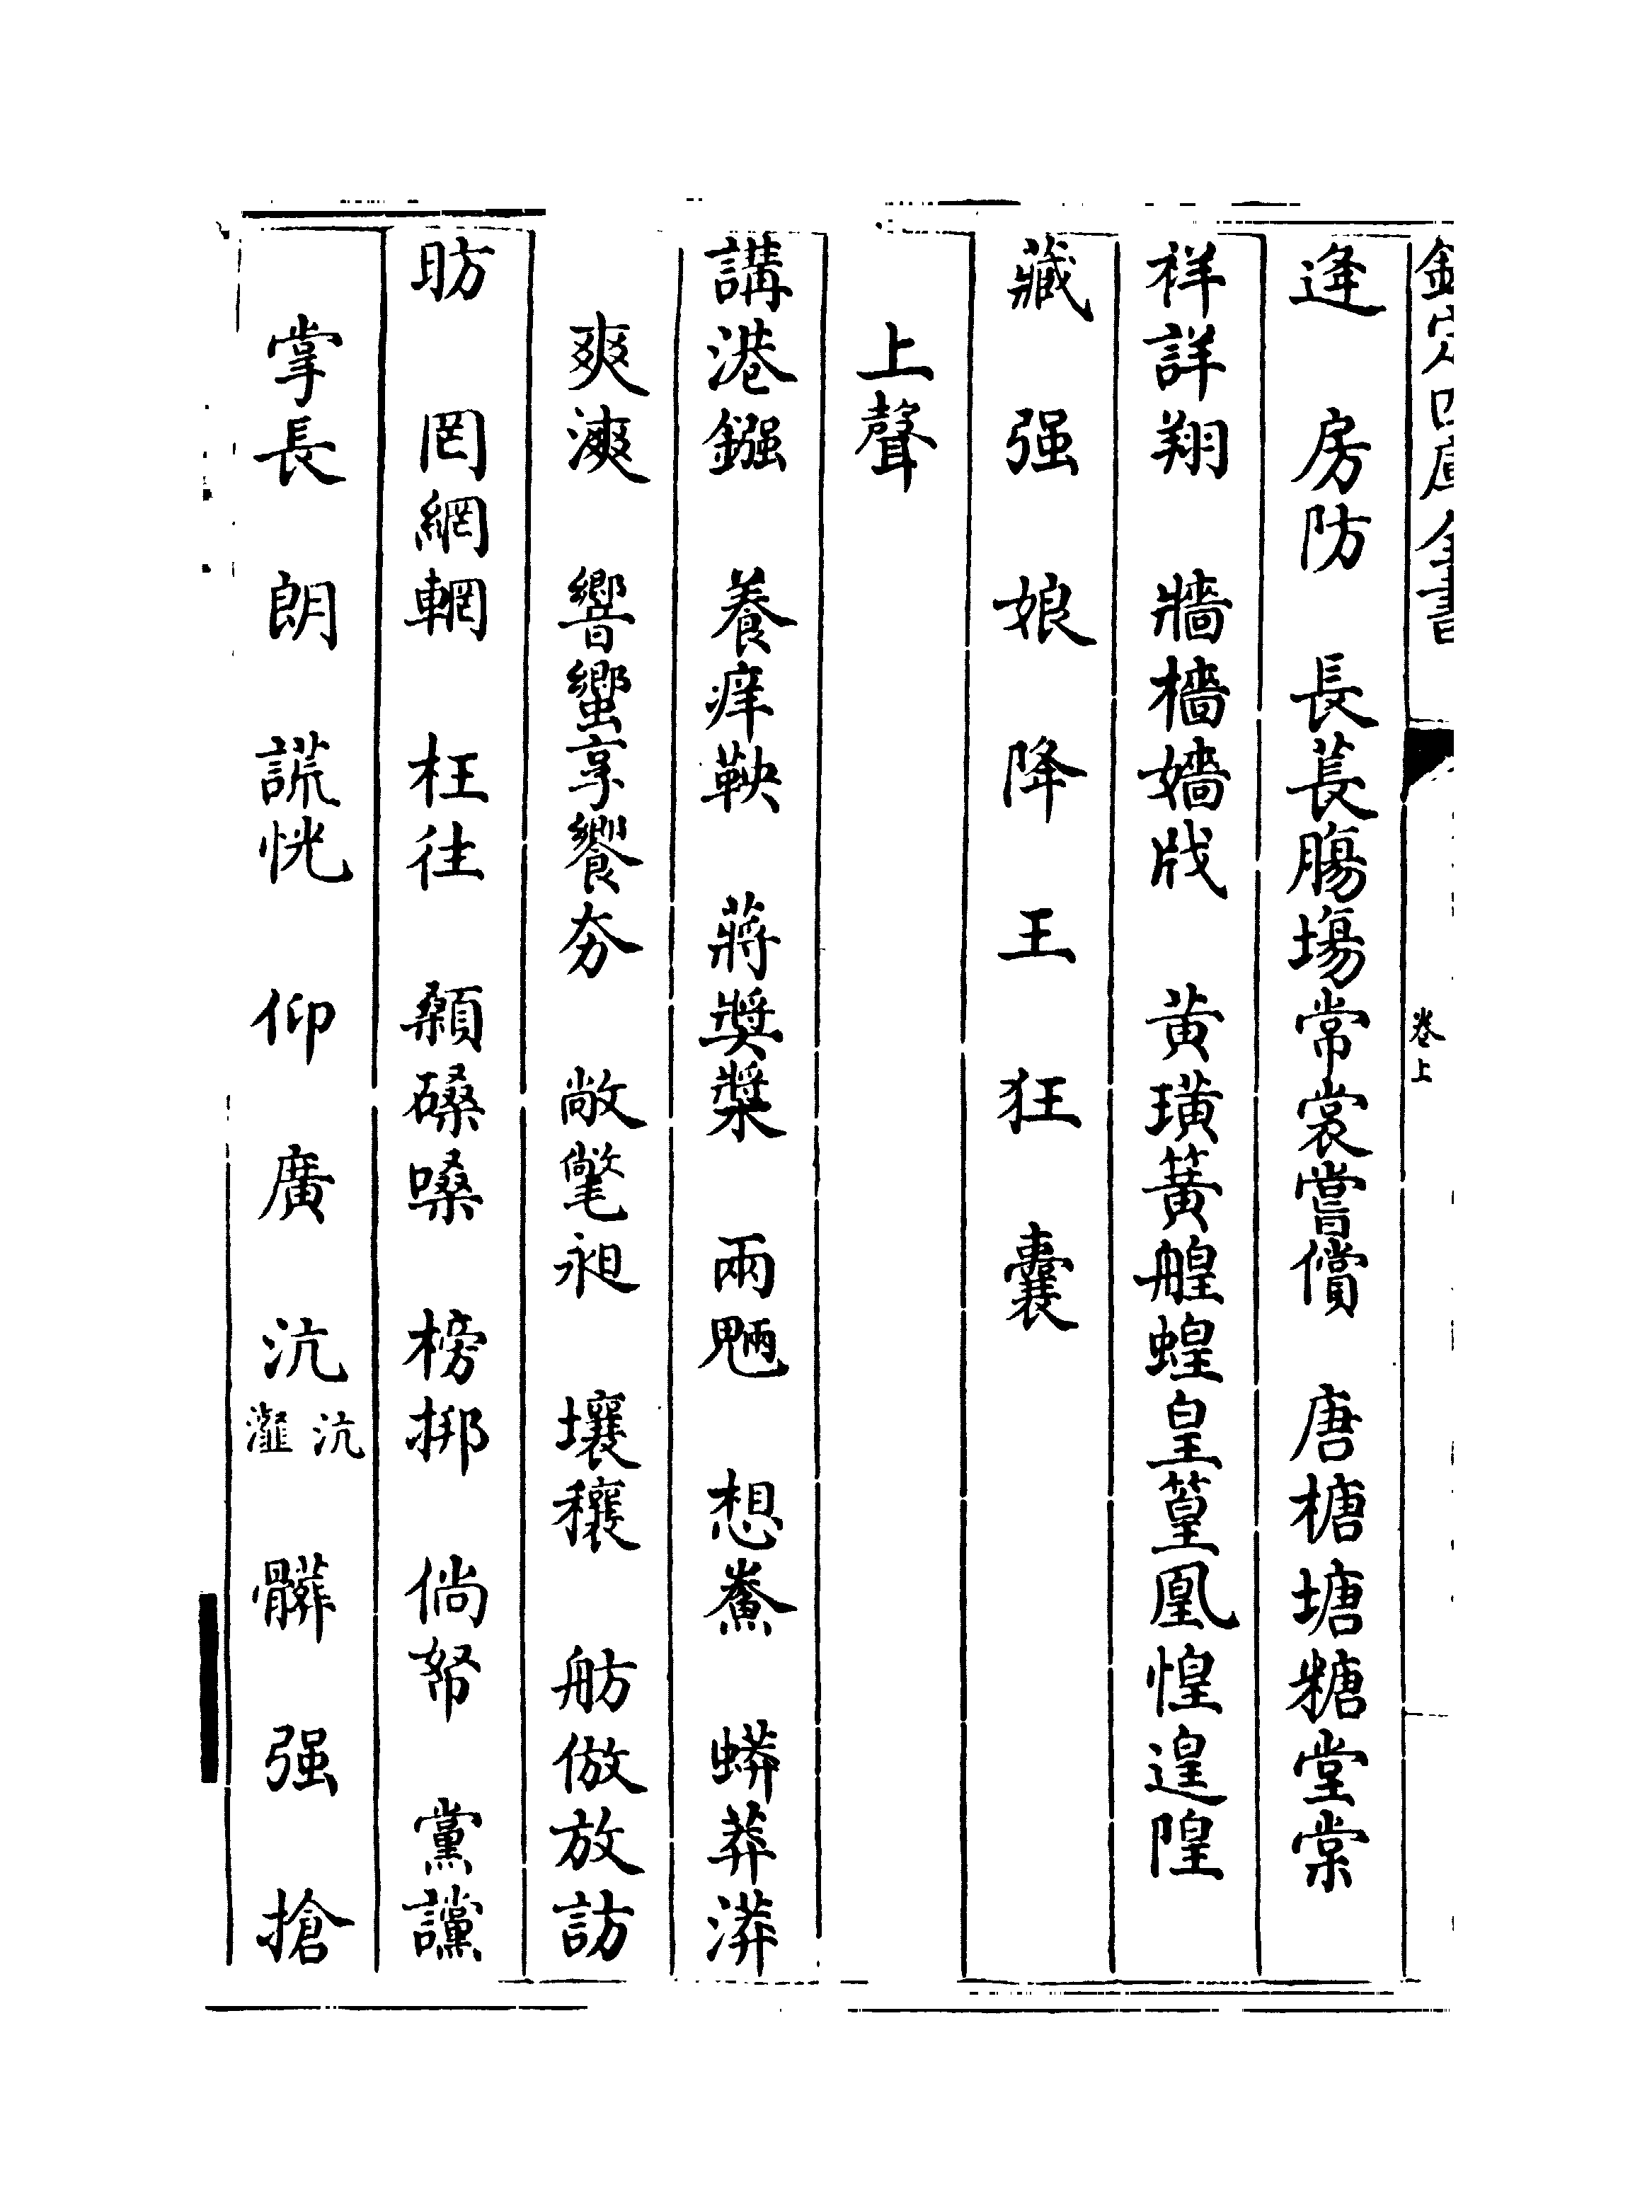 欽定四庫全書
卷上
逄　房防　長萇腸場常裳嘗償　唐榶塘糖堂棠
祥詳翔　牆檣嬙戕　黄璜簧艎蝗皇篁凰惶遑隍
藏　强　娘　降　王　狂　囊
上聲
講港鏹　養痒鞅　蔣奬槳　兩魎　想鯗　蟒莽漭
爽漺　響蠁享饗夯　敞氅昶　壤穰　舫倣放訪
昉　罔網輞　枉往　顙磉嗓　榜挷　倘帑　黨讜
掌長　朗　謊恍　仰　廣　沆沆瀣　髒　强　搶